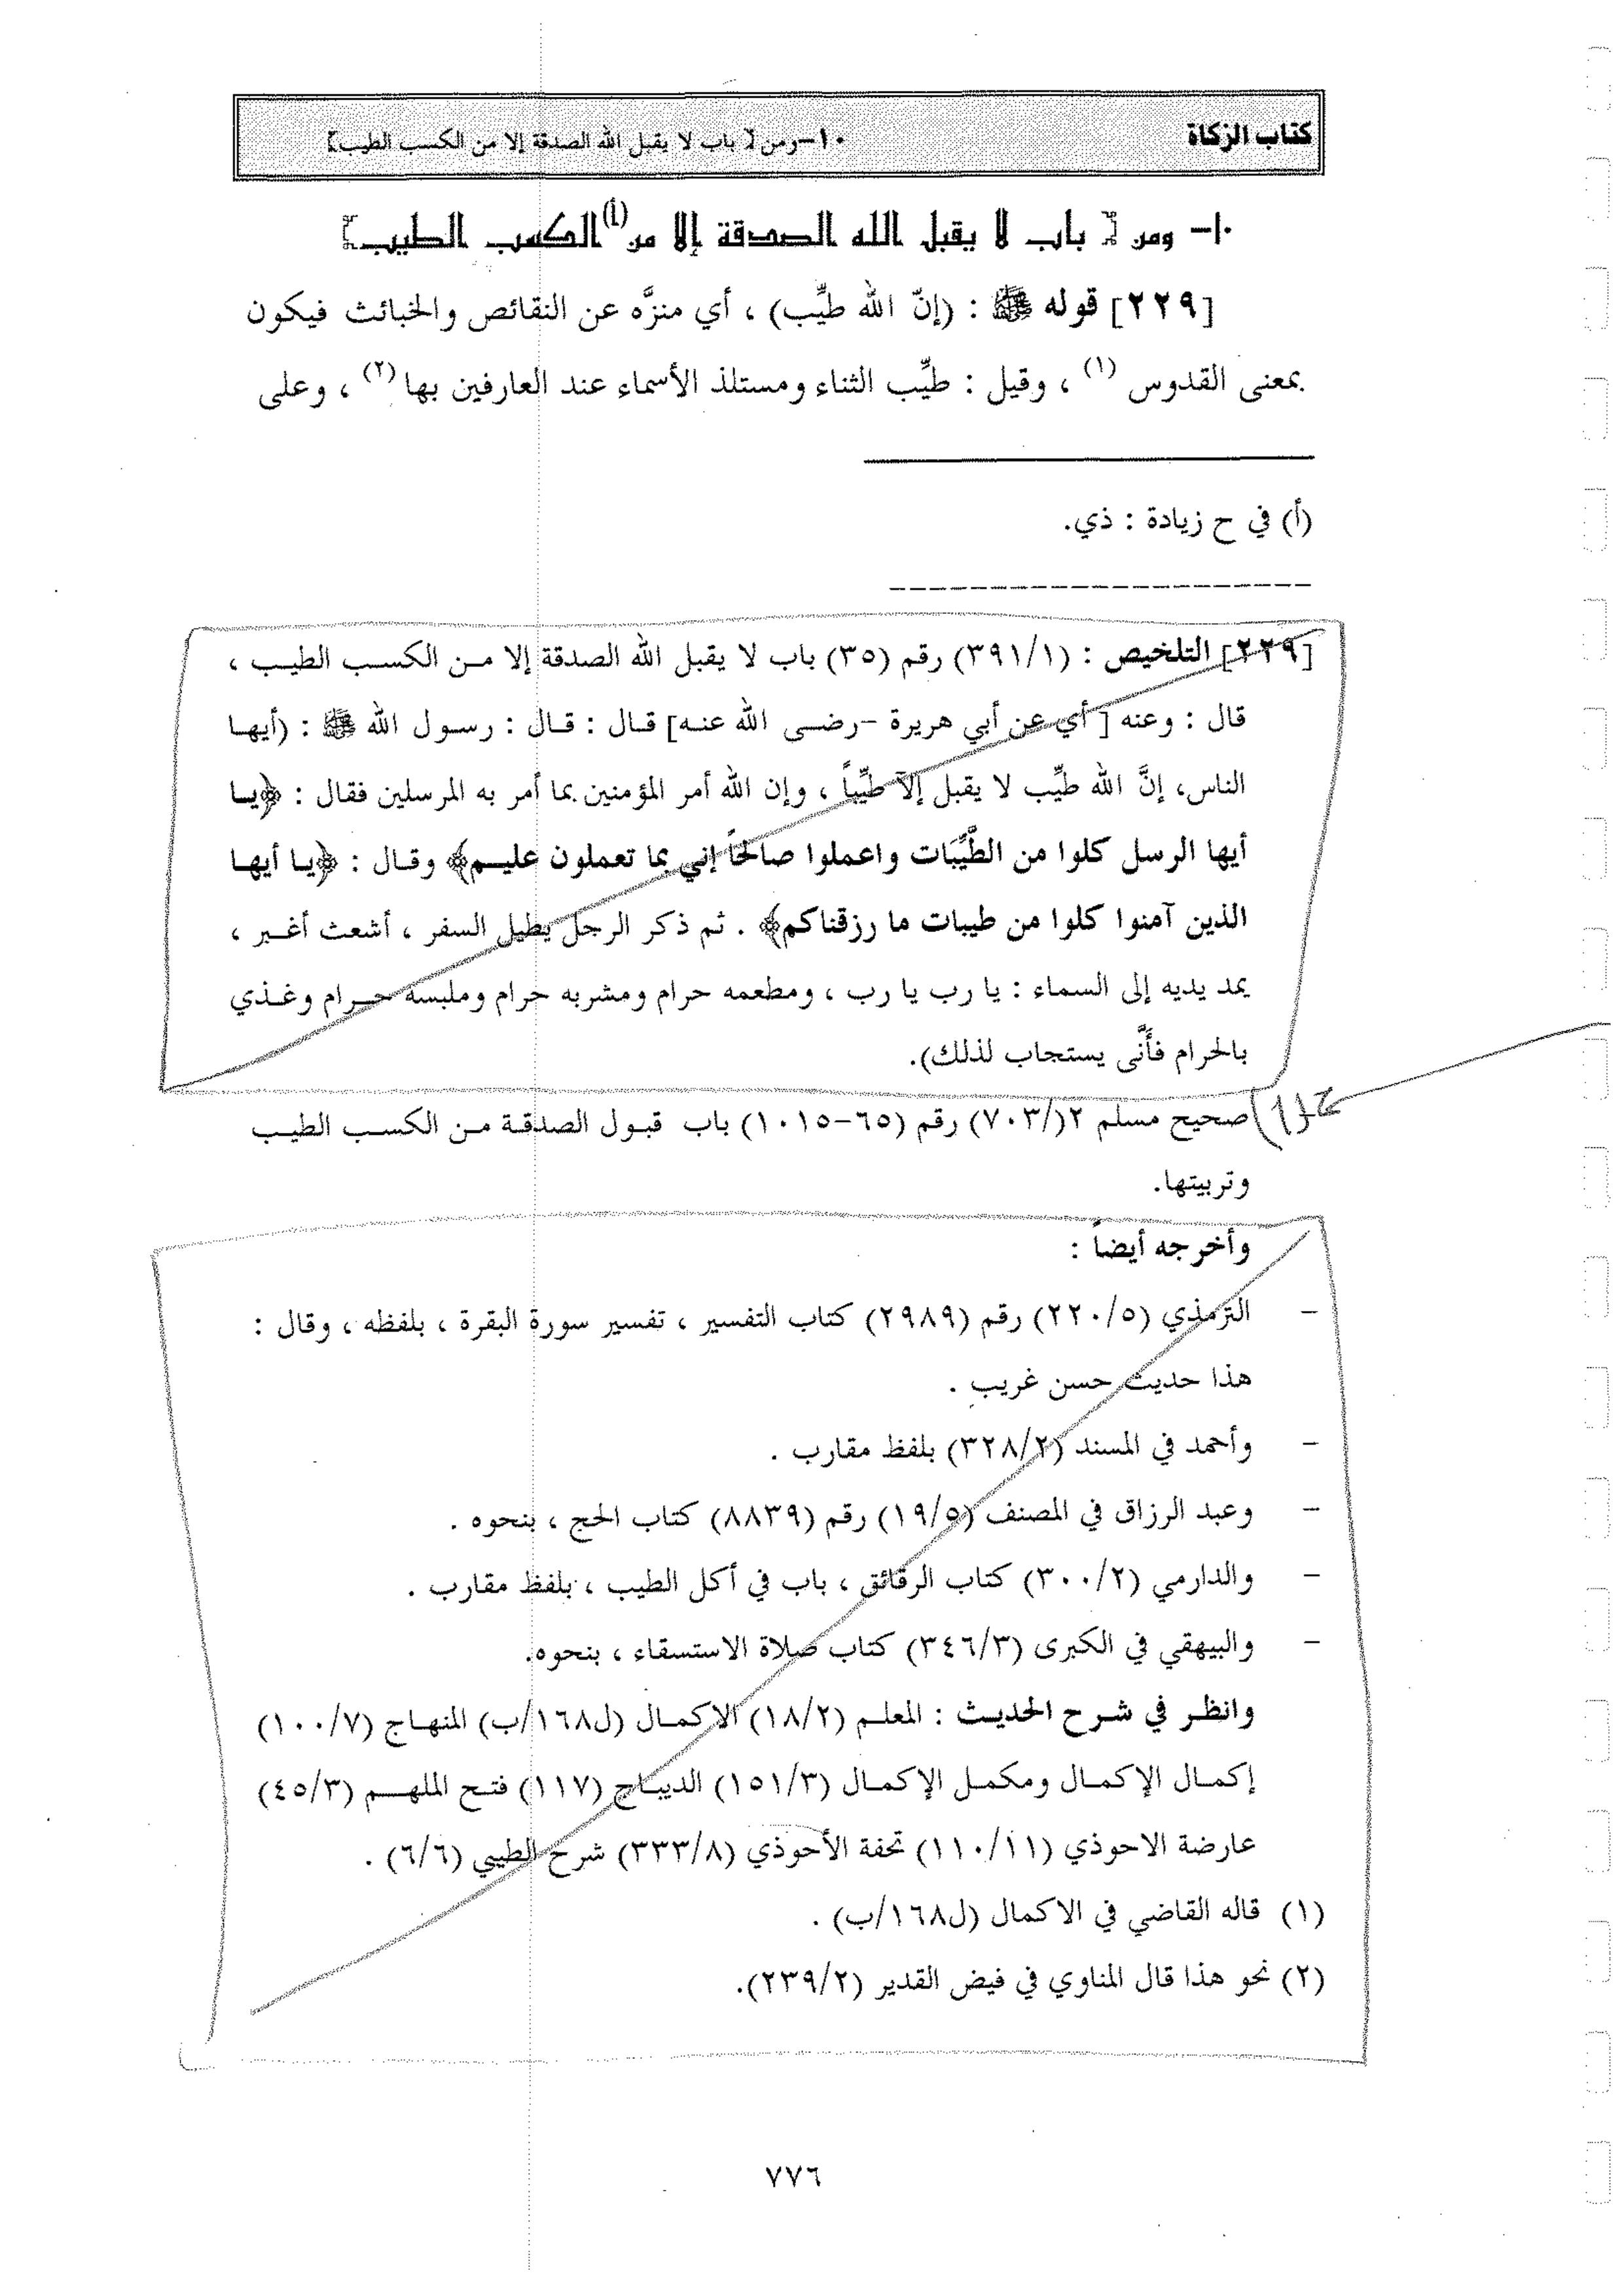 كتاب الزكاة
١٠-ومن [ باب لا يقبل الله الصدقة إلا من الكسب الطيب]
١٠- ومن [ باب لا يقبل الله الصدقة إلا من(أ) الكسب الطيب]
[٢٢٩] قوله ﷺ : (إنّ الله طيِّب) ، أي منزَّه عن النقائص والخبائث فيكون
بمعنى القدوس (١) ، وقيل : طيِّب الثناء ومستلذ الأسماء عند العارفين بها (٢) ، وعلى
(أ) في ح زيادة : ذي.
[٢٢٩] التلخيص : (٣٩١/١) رقم (٣٥) باب لا يقبل الله الصدقة إلا من الكسب الطيب ،
قال : وعنه [ أي عن أبي هريرة -رضى الله عنه] قال : قال : رسول الله ﷺ : (أيها
الناس، إنَّ الله طيِّب لا يقبل إلاّ طيِّباً ، وإن الله أمر المؤمنين بما أمر به المرسلين فقال : ﴿يا
أيها الرسل كلوا من الطَّيِّبَات واعملوا صالحاً إني بما تعملون عليم﴾ وقال : ﴿يا أيها
الذين آمنوا كلوا من طيبات ما رزقناكم﴾ . ثم ذكر الرجل يطيل السفر ، أشعث أغبر ،
يمد يديه إلى السماء : يا رب يا رب ، ومطعمه حرام ومشربه حرام وملبسه حرام وغذي
بالحرام فأَنَّى يستجاب لذلك).
صحيح مسلم ٢(/٧٠٣) رقم (٦٥-١٠١٥) باب قبول الصدقة من الكسب الطيب
وتربيتها.
وأخرجه أيضاً :
- الترمذي (٢٢٠/٥) رقم (٢٩٨٩) كتاب التفسير ، تفسير سورة البقرة ، بلفظه ، وقال :
هذا حديث حسن غريب .
- وأحمد في المسند (٣٢٨/٢) بلفظ مقارب .
- وعبد الرزاق في المصنف (١٩/٥) رقم (٨٨٣٩) كتاب الحج ، بنحوه .
- والدارمي (٣٠٠/٢) كتاب الرقائق ، باب في أكل الطيب ، بلفظ مقارب .
- والبيهقي في الكبرى (٣٤٦/٣) كتاب صلاة الاستسقاء ، بنحوه.
وانظر في شرح الحديث : المعلم (١٨/٢) الاكمال (ل١٦٨/ب) المنهاج (١٠٠/٧)
إكمال الإكمال ومكمل الإكمال (١٥١/٣) الديباج (١١٧) فتح الملهم (٤٥/٣)
عارضة الاحوذي (١١٠/١١) تحفة الأحوذي (٣٣٣/٨) شرح الطيبي (٦/٦) .
(١) قاله القاضي في الاكمال (ل١٦٨/ب) .
(٢) نحو هذا قال المناوي في فيض القدير (٢٣٩/٢).
٧٧٦